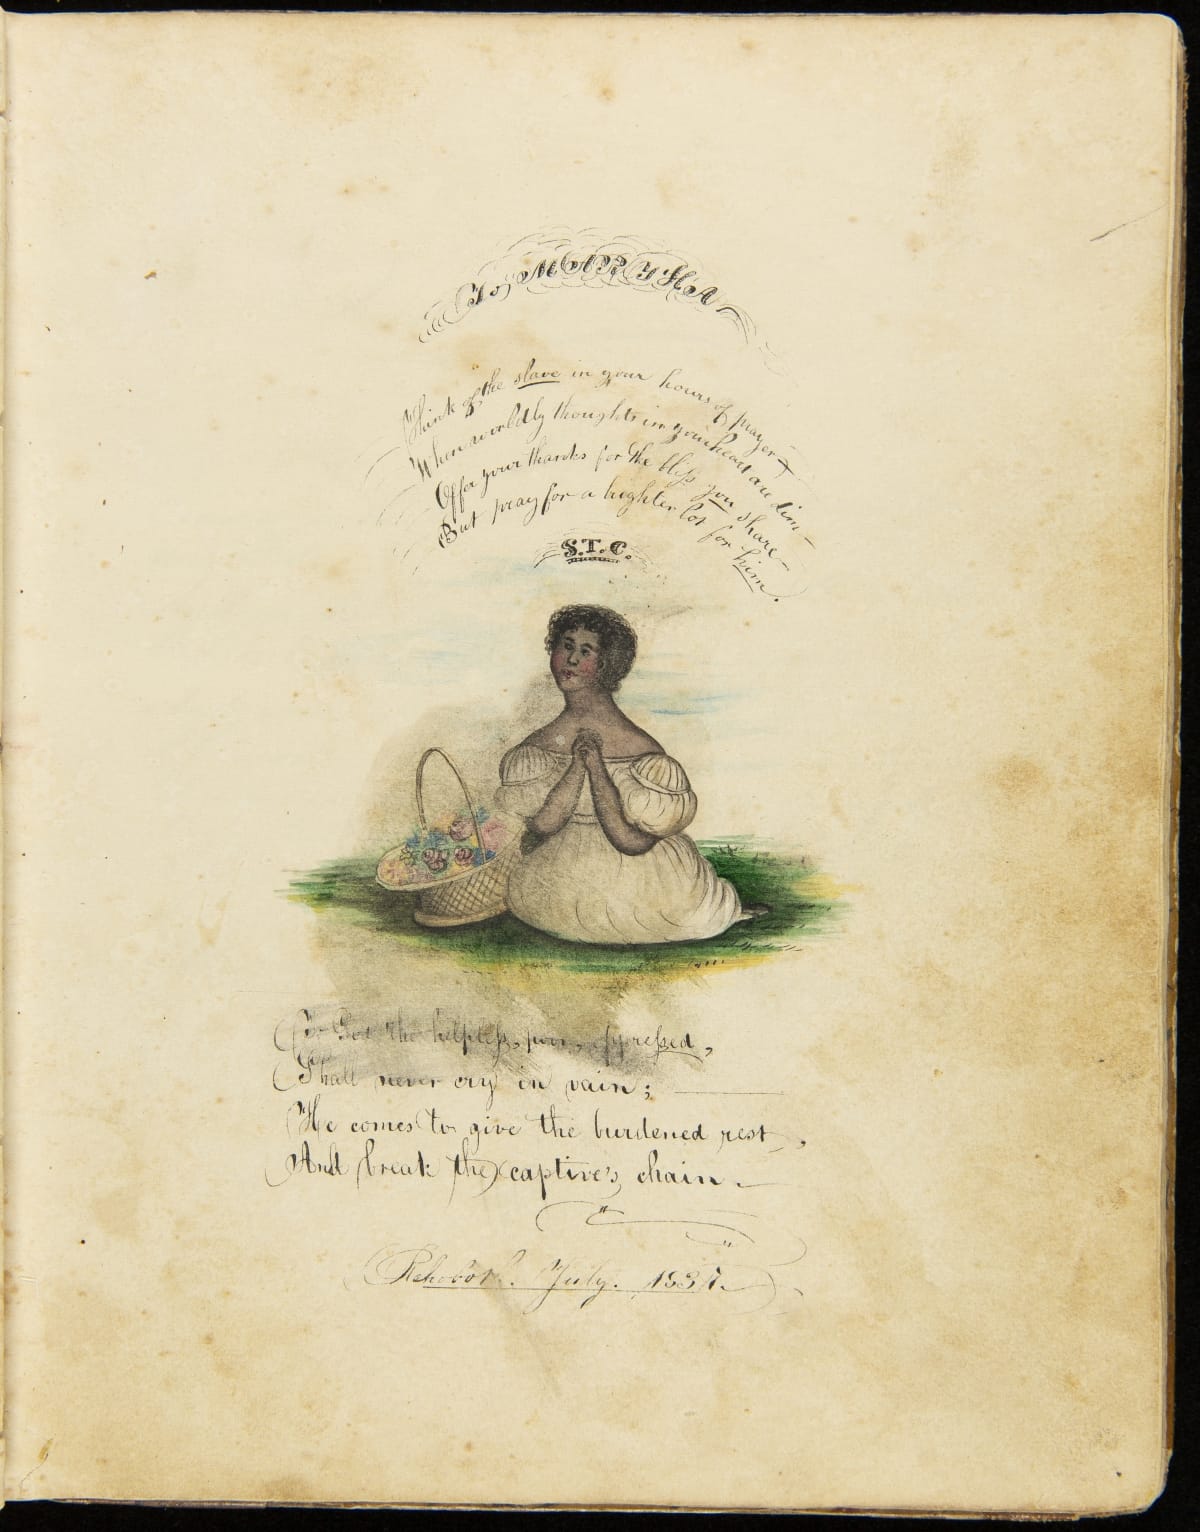 To MARTHA
Think of the slave in your hours of prayer —
When worldly thoughts in your heart are dim —
Offer your thanks for the bliss you share —
But pray for a brighter lot for him.
S.T.C.
To God the helpless, poor, oppressed,
Shall never cry in vain; —
He comes to give the burdened rest,
And break the captive's chain. —
Rehoboth. July. 1837.